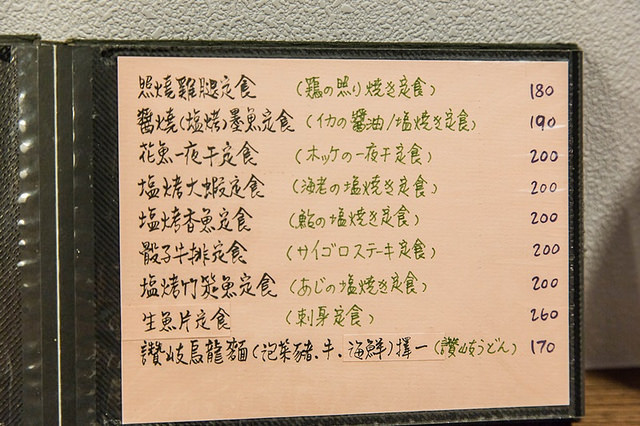 照燒雞腿定食 (鶏の照り焼き定食) 180
醬燒(塩烤)墨魚定食 (イカの醤油/塩焼き定食) 190
花魚一夜干定食 (ホッケの一夜干定食) 200
塩烤大蝦定食 (海老の塩焼き定食) 200
塩烤香魚定食 (鮎の塩焼き定食) 200
骰子牛排定食 (サイゴロステーキ定食) 200
塩烤竹筴魚定食 (あじの塩焼き定食) 200
生魚片定食 (刺身定食) 260
讃岐烏龍麵(泡菜豬、牛、海鮮)擇一 (讃岐うどん) 170